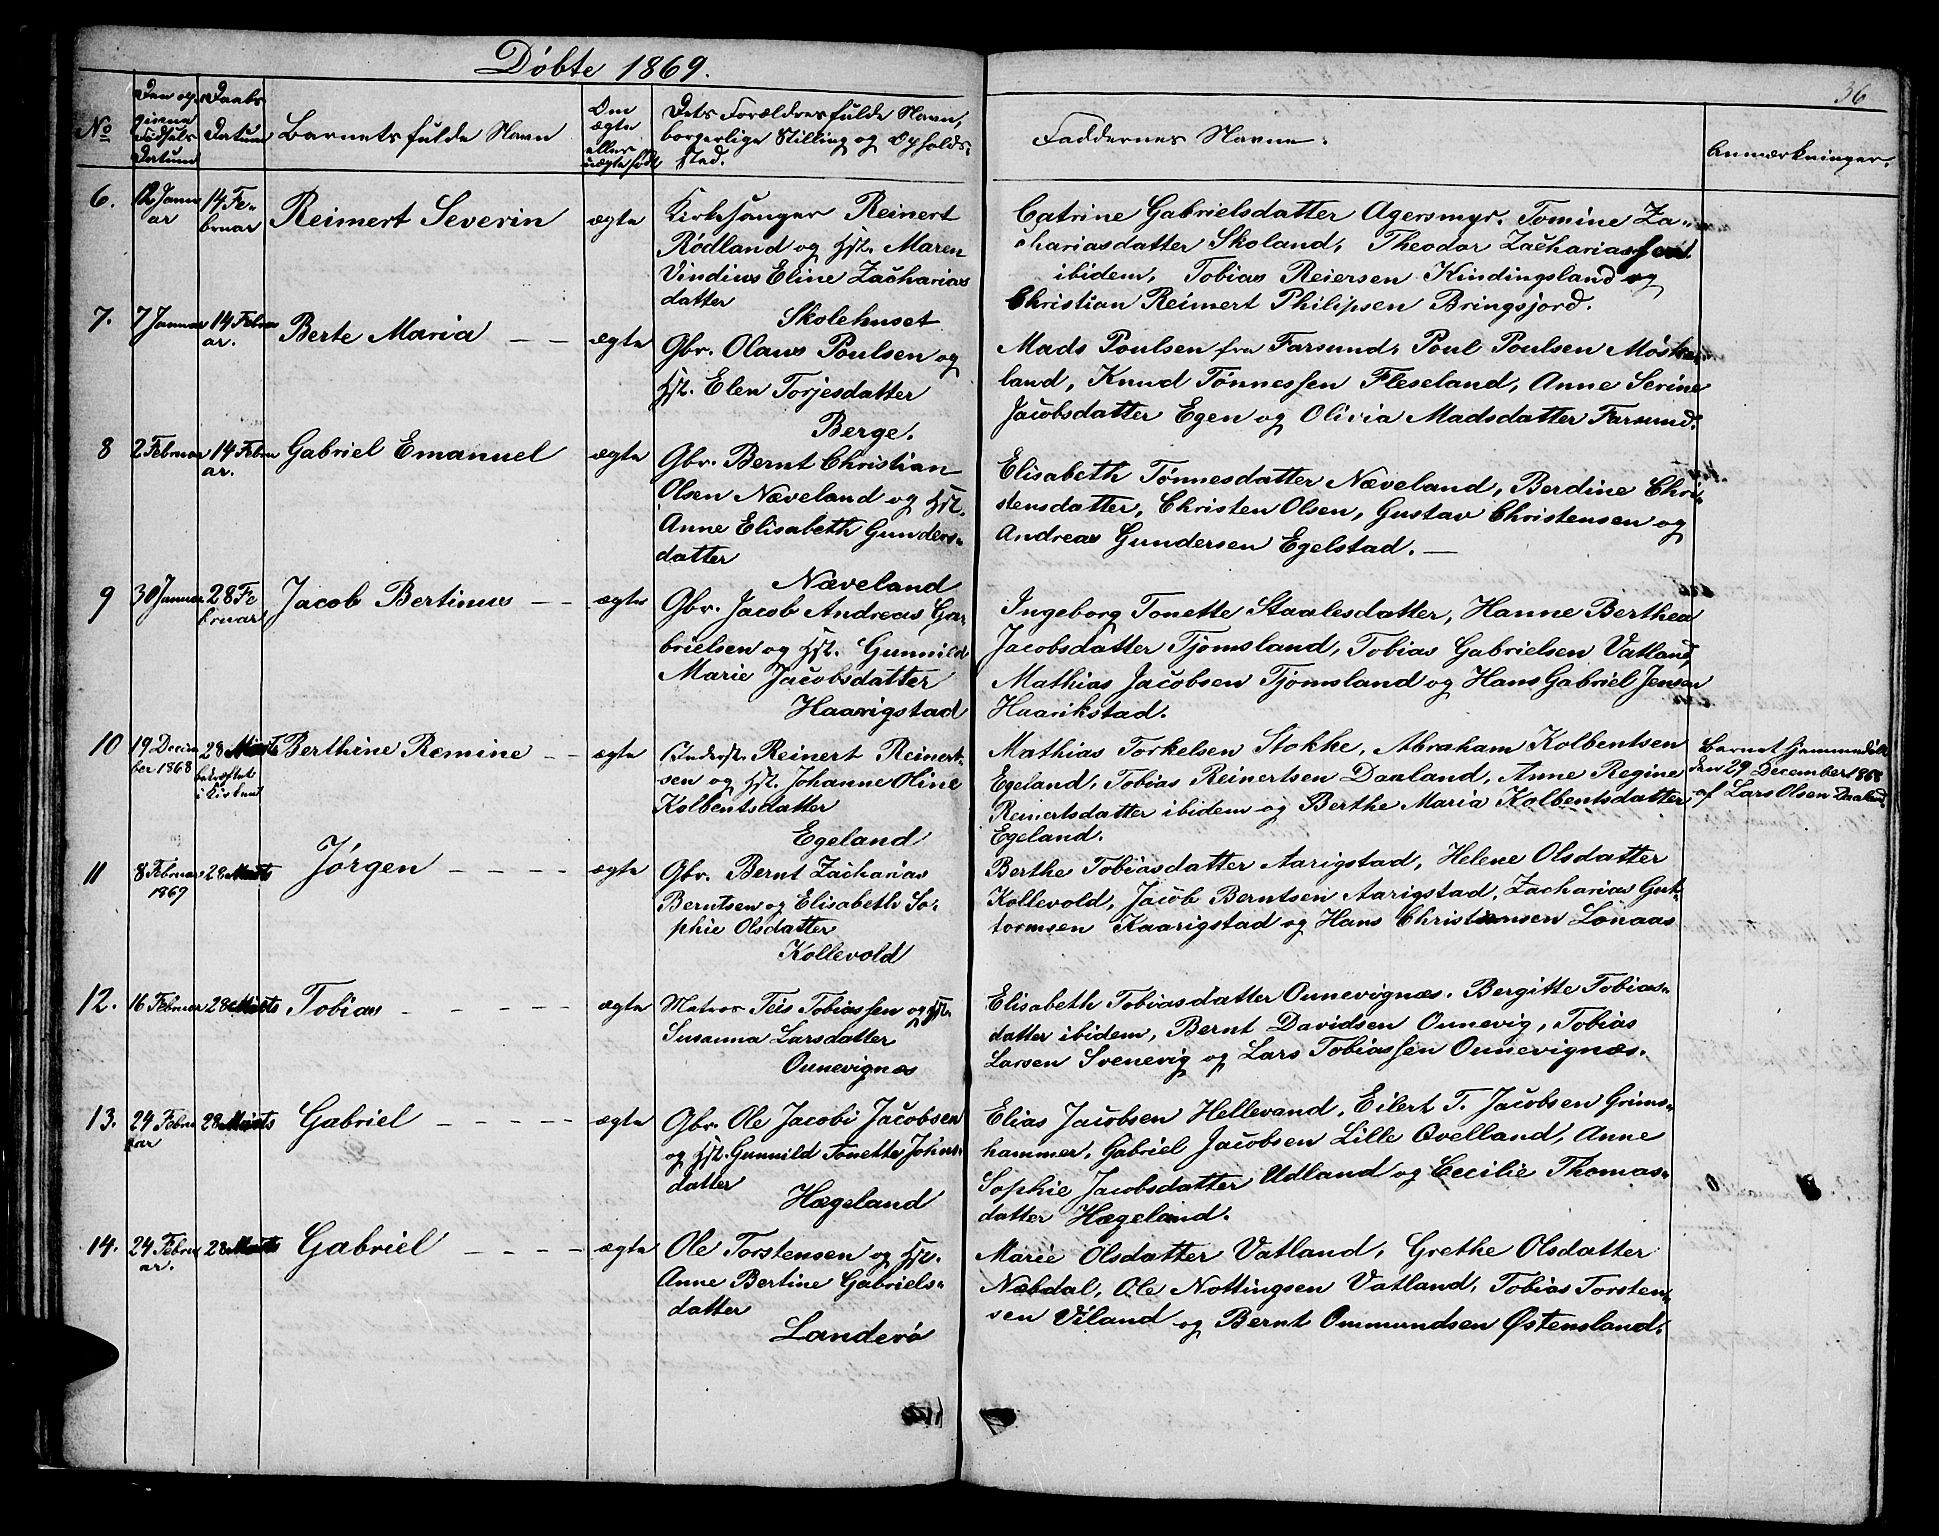 Døbte 1869.
36
No
Den op-
givene
Fødsels
Datum
Daabs
Datum
Barnets fulde Navn
Om
ægte
eller
uægte født
Dets Forældres fulde Navn,
borgerlige Stilling og Opholds-
sted.
Faddernes Navne.
Anmærkninger.
6. 12 Janu
ar
14 Fe-
bruar
Reimert Severin
ægte
Kirkesanger Reinert
Rødland og Hst. Maren
Vindius Eline Zacharias
datter
Skolehuset
Catrine Gabrielsdatter Agersmyr. Tomine Za-
chariasdatter Skoland, Theodor Zachariassen
ibidem, Tobias Reiersen Kindingsland og
Christian Reimert Philipsen Bringsjord.
7. 7 Januar
14 Febru
ar.
Berte Maria
ægte
Gbr. Olaus Poulsen og
Hst. Elen Torjesdatter
Berge.
Mads Poulsen fra Farsund, Poul Poulsen Møske-
land, Knud Tønnessen Fleseland, Anne Serine
Jacobsdatter Egen og Olivia Madsdatter Farsund.
8 2 Februar
14 Febru
ar.
Gabriel Emanuel
ægte
Gbr. Bernt Christian
Olsen Næveland og Hst.
Anne Elisabeth Gunders-
datter
Næveland
Elisabeth Tønnesdatter Næveland, Berdine Chri-
stensdatter, Christen Olsen, Gustav Christensen og
Andreas Gundersen Egelstad.
9 30 Januar
28 Fe
bruar
Jacob Bertinus
ægte
Gbr. Jacob Andreas Ga-
brielsen og Hst. Gunnild
Marie Jacobsdatter
Haarigstad
Ingeborg Tonette Staalesdatter, Hanne Berthea
Jacobsdatter Tjomsland, Tobias Gabrielsen Vatland,
Mathias Jacobsen Tjomsland og Hans Gabriel Jensen
Haarikstad.
10 19 Decem
ber 1868
28 Marts
bekræftet
i Kirken
Berthine Remine
ægte
Reinert Reinert-
sen og Hst. Johanne Oline
Kolbentsdatter
Egeland
Mathias Torkelsen Stokke, Abraham Kolbentsen
Egeland, Tobias Reinertsen Daaland, Anne Regine
Reinertsdatter ibidem og Berthe Maria Kolbentsdatter
Egeland.
Barnet hjemmedøbt
den 29 December 1868
af Lars Olsen Daaland
11 8 Februar
1869
28 Marts
Jørgen
ægte
Gbr. Bernt Zacharias
Berntsen og Elisabeth So-
phie Olsdatter
Kollevold
Berthe Tobiasdatter Aarigstad, Helene Olsdatter
Kollevold, Jacob Berntsen Aarigstad, Zacharias Gut-
tormsen Kaarigstad og Hans Christiansen Lonaas
12. 16 Februar
28 Marts
Tobias
ægte
Matros Teis Tobiassen og Hst.
Susanna Larsdatter
Ounevignæs
Elisabeth Tobiasdatter Ounevignæs. Bergitte Tobias-
datter ibidem, Bernt Davidsen Ounevig, Tobias
Larsen Svenevig og Lars Tobiassen Ounevignæs.
13. 24 Febru
ar
28 Marts
Gabriel
ægte
Gbr. Ole Jacobi Jacobsen
og Hst. Gunnild Tonette Johns-
datter
Hægeland
Elias Jacobsen Hellevand, Eilert T. Jacobsen Grims-
hammer, Gabriel Jacobsen Lille Qvelland, Anne
Sophie Jacobsdatter Udland og Cecilie Thomas-
datter Hægeland.
14. 24 Febru
ar.
28 Marts
Gabriel
ægte
Ole Torstensen og Hst.
Anne Bertine Gabriels-
datter
Landerø
Marie Olsdatter Vatland, Grethe Olsdatter
Næbdal, Ole Nottingsen Vatland, Tobias Torsten-
sen Viland og Bernt Ommundsen Østensland.